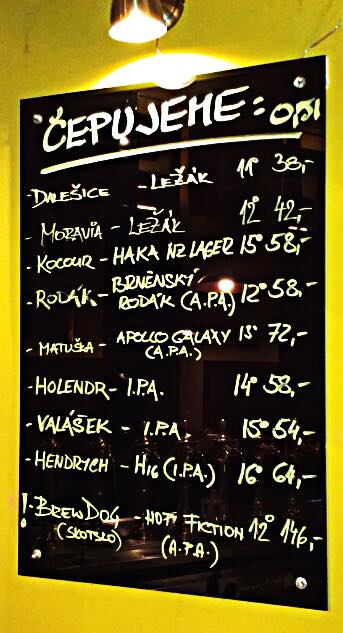 ČEPUJEME: 0,5l
- DALEŠICE - LEŽÁK 11° 38,-
- MORAVIA - LEŽÁK 12° 42,-
- KOCOUR - HAKA NZ LAGER 15° 58,-
- RODÁK - BRNĚNSKÝ
RODÁK (A.P.A.) 12° 58,-
- MATUŠKA - APOLLO GALAXY 15° 72,-
(A.P.A.)
- HOLENDR - I.P.A. 14° 58,-
- VALÁŠEK - I.P.A. 15° 54,-
- HENDRYCH - H16 (I.P.A.) 16° 64,-
! - BREWDOG - FICTION 12° 146,-
(SKOTSKO) (A.P.A.)